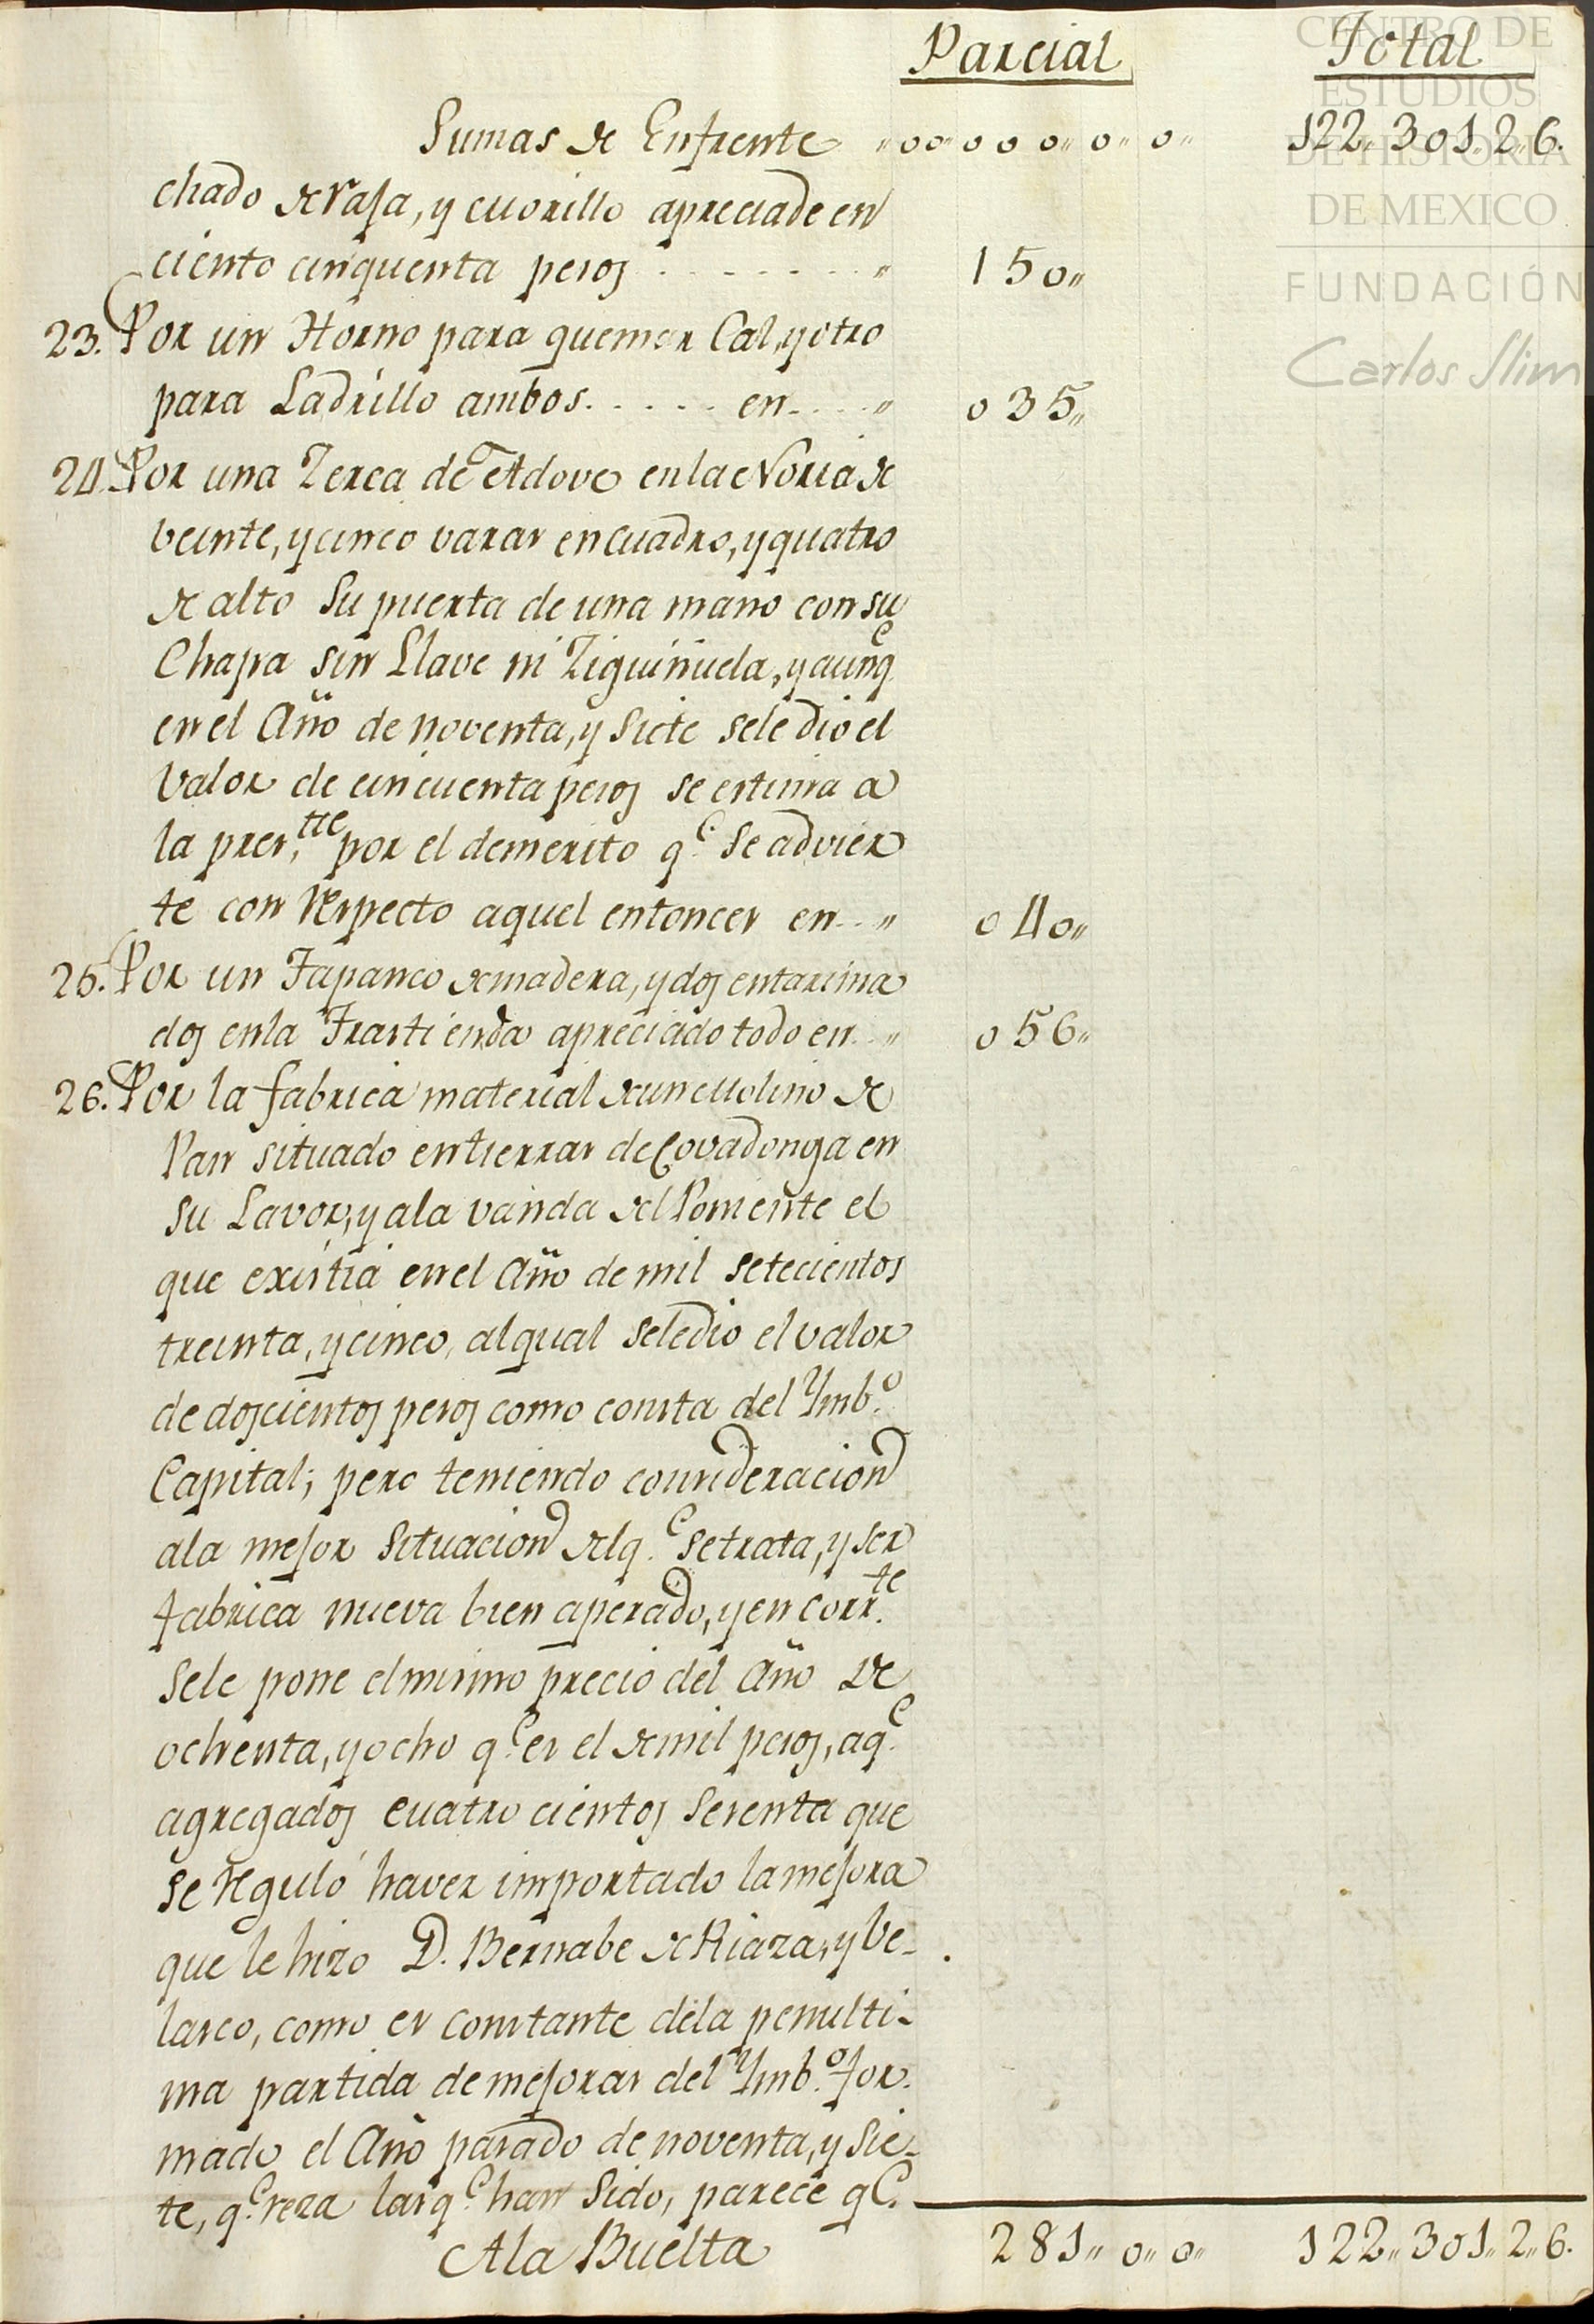 Parcial Total
Sumas de Enfrente ,, 00 ,, 0 0 0 ,, 0 ,, 0 ,, 122,, 301,, 2,, 6.
chado de rasa, y cuorillo apreciade en
ciento cinquenta pesos . . . . . . . ,, 150,,
23. Por un Horno para quemar Cal, y otro
para Ladrillo ambos. . . . . en. . . . ,, 035,,
24. Por una Zerca de Adove en la Noria de
veinte, y cinco varas en cuadro, y quatro
de alto Su puerta de una mano con su
Chapa sin Llave ni Ziguiñuela, y aunq.e
en el Año de noventa, y Siete sele dio el
Valor de cincuenta pesos se estima a
la pres.tte por el demerito q.e Se advier
te con respecto aquel entonces en. . ,, 040,,
25. Por un Tapanco de madera, y dos entarima
dos en la Trastienda apreciado todo en. . ,, 056,,
26. Por la fabrica material de un Molino de
Pan situado en tierras de Covadonga en
su Lavor, y ala vanda del Poniente el
que existia en el Año de mil setecientos
treinta, y cinco, al qual sele dio el valor
de doscientos pesos como consta del Ymb.o
Capital; pero teniendo consideracion
ala mejor situacion del q.e se trata, y ser
fabrica nueva bien aperado, y en corr.te
sele pone el mismo precio del Año de
ochenta, y ocho q.e es el de mil pesos, aq.e
agregados cuatro cientos sesenta que
se reguló haver importado la mejora
que le hizo D. Bernabe de Riaza, y Ve-
lasco, como es constante dela penulti-
ma partida de mejoras del Ymb.o for-
mado el Año pasado de noventa, y Sie-
te, q.e reza las q.e han Sido, parece q.e
Ala Buelta 281,, 0,, 0,, 122,, 301,, 2,, 6.
CENTRO DE
ESTUDIOS
DE HISTORIA
DE MEXICO
FUNDACIÓN
Carlos Slim